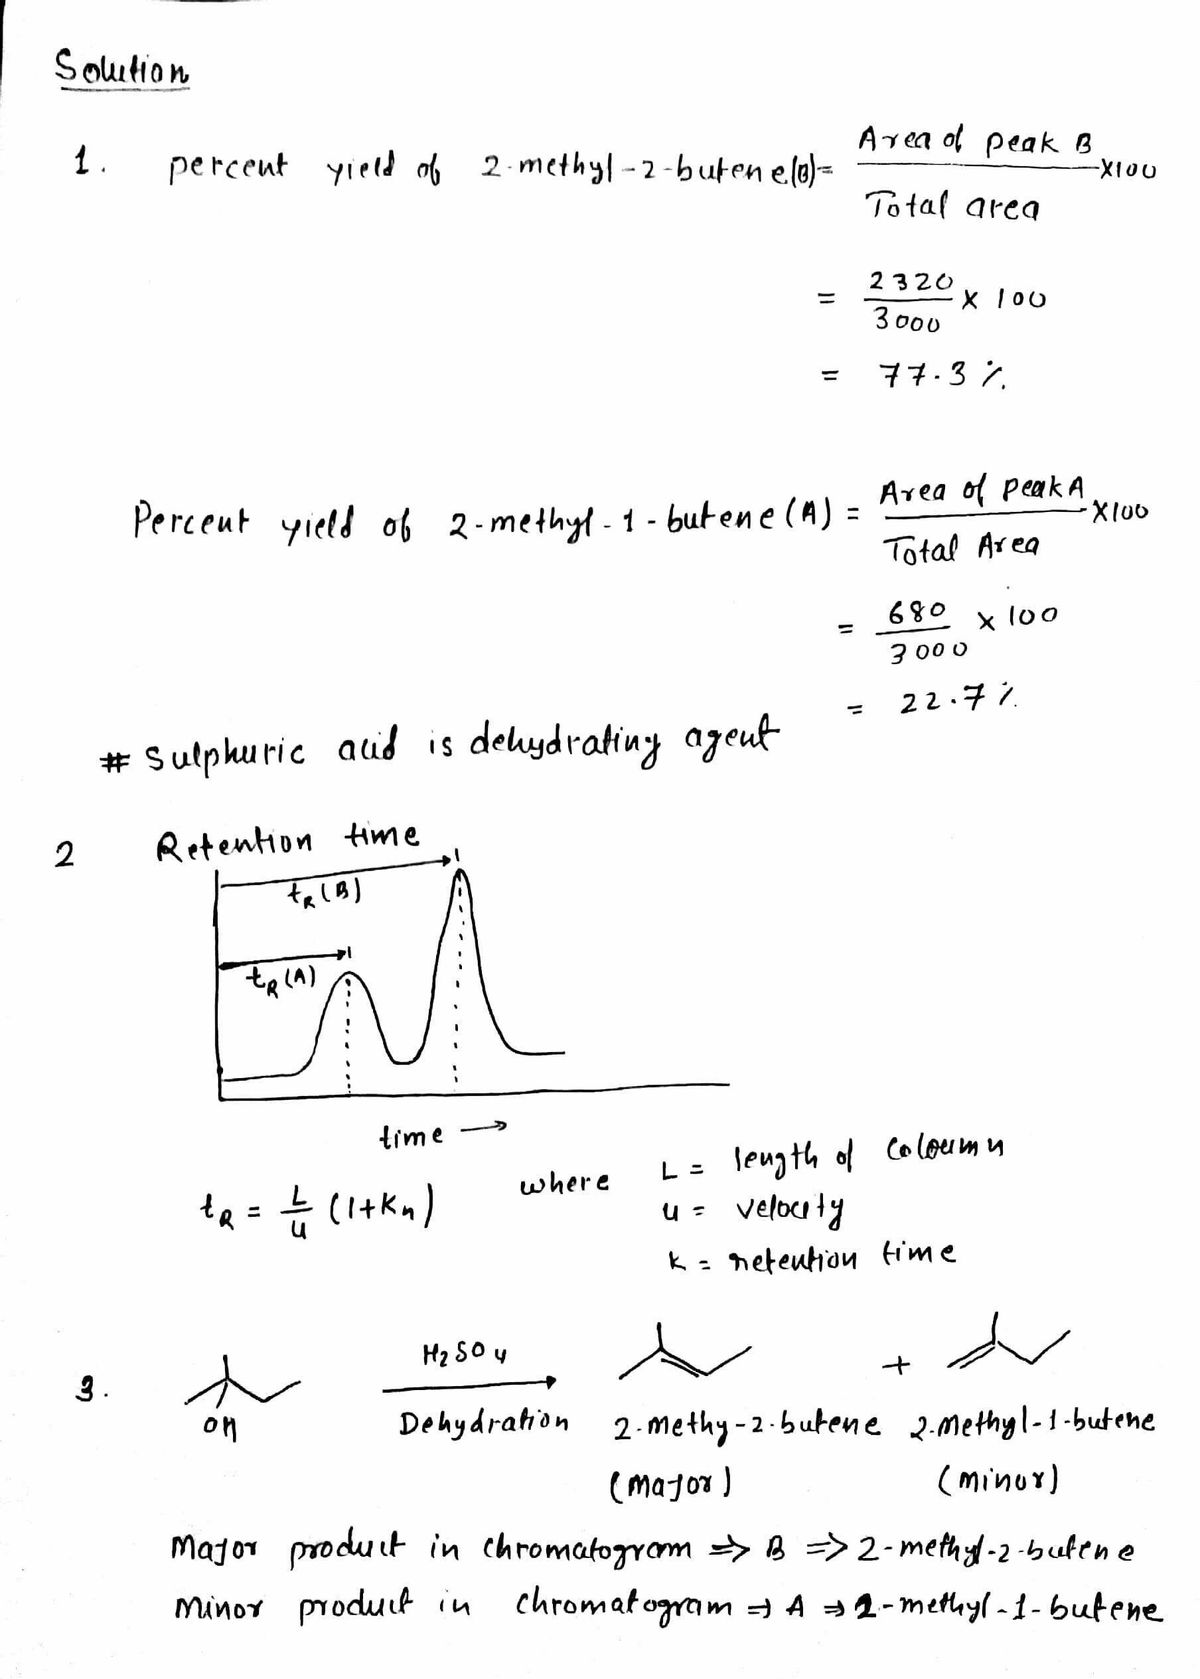 Solution
1. percent yield of 2-methyl-2-butene(B)= Area of peak B / Total area ×100
= 2320 / 3000 × 100
= 77.3 %
Percent yield of 2-methyl-1-butene (A) = Area of peak A / Total Area ×100
= 680 / 3000 × 100
= 22.7 %
# Sulphuric acid is dehydrating agent
2 Retention time
tR (B)
tR (A)
time →
tR = L/u (1+Kn) where L = length of coloumn
u = velocity
k = retention time
3. OH H2SO4 Dehydration +
2-methy-2-butene 2-methyl-1-butene
(major) (minor)
Major product in chromatogram ⇒ B ⇒ 2-methyl-2-butene
Minor product in chromatogram ⇒ A ⇒ 2-methyl-1-butene